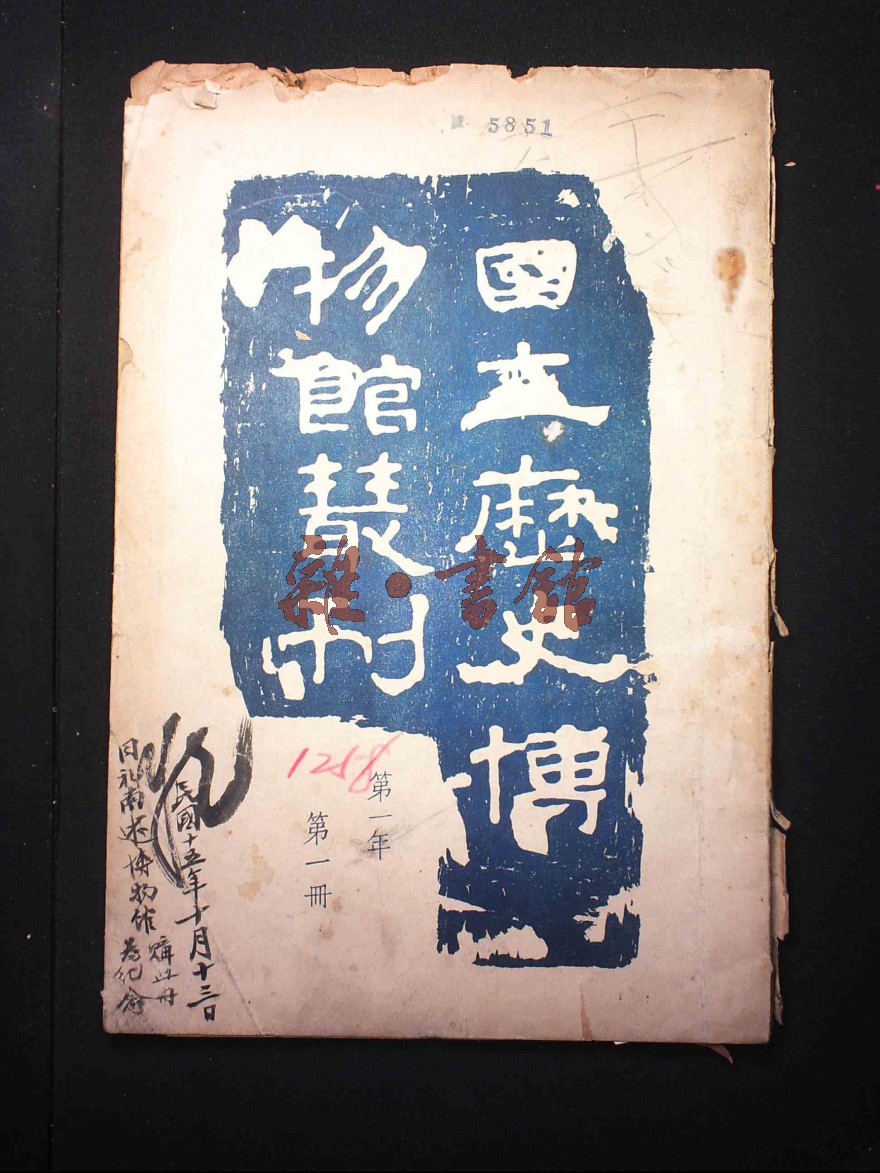 5851
國立歷史博
物館叢刊
雜·書館
第一年
第一冊
1258
民國十五年十月十三日
南遊博物館購此冊
為紀念